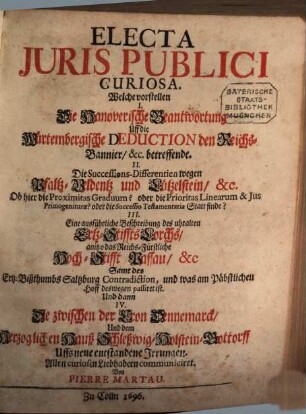 ELECTA
JURIS PUBLICI
CURIOSA.
Welche vorstellen
I.
Die Hanoverische Beantwortung
Uff die
Würtembergische DEDUCTION den Reichs-
Bannier/ &c. betreffende.
II.
Die Successions-Differentien wegen
Pfaltz-Veldentz und Lützelstein/ &c.
Ob hier die Proximitas Graduum? oder die Prioritas Linearum & Jus
Primogenituræ? oder die Successio Testamentaria Statt finde?
III.
Eine ausführliche Beschreibung des uhralten
Ertz-Stiffts Lorchs/
anitzo das Reichs-Fürstliche
Hoch-Stifft Passau/ &c
Samt des
Ertz-Bißthumbs Saltzburg Contradiction, und was am Päbstlichen
Hoff deswegen passiret ist.
Und dann
IV.
Die zwischen der Cron Dennemarck/
Und dem
Hertzoglichen Hauß Schleßwig-Holstein-Gottorff
Uffs neue entstandene Irrungen.
Allen curiosen Liebhabern communiciret.
Von
PIERRE MARTAU.
Zu Cölln 1696.
BAYERISCHE
STAATS-
BIBLIOTHEK
MUENCHEN